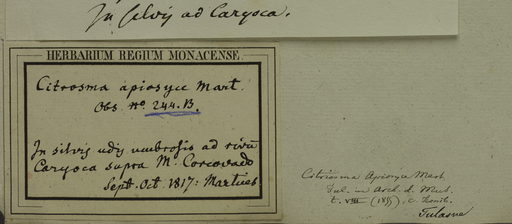 In silvis ad Caryoca.
HERBARIUM REGIUM MONACENSE.
Citrosma apiosyce Mart.
Obs. no. 244.B.
In silvis udis umbrosis ad rivu
Caryoca supra M. Corcovado
Sept. Oct. 1817: Martius
Citriosma Apiosyce Mart.
Tul. in Arch. d. Mus.
t. VIII (1855), c. Icon
Tulasne